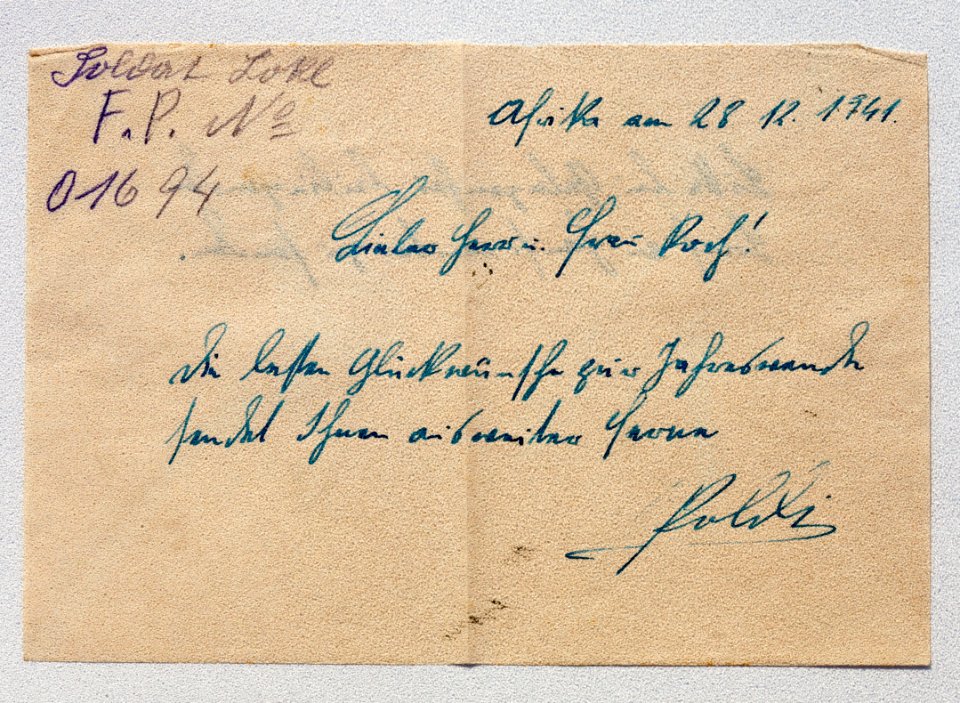 Soldat Lokl
F. P. No
01694
Afrika am 28 12. 1941.
Lieber Herr u. Frau Koch!
Die besten Glückwünsche zur Jahreswende
sendet Ihnen aus weiter Ferne
Poldi